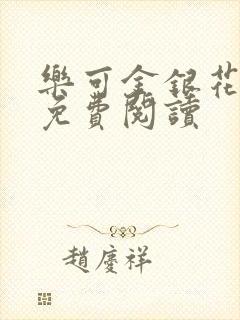 樂可金銀花
免費閱讀
趙慶祥